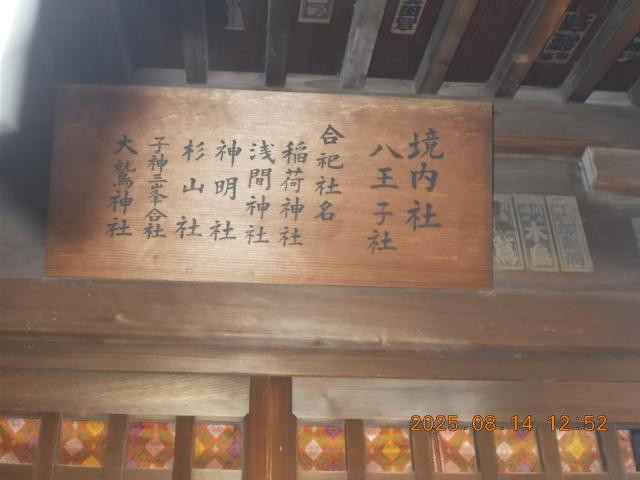 境内社
八王子社
合祀社名
稲荷神社
浅間神社
神明社
杉山社
子神三峯合社
大鷲神社
2025.08.14 12:52